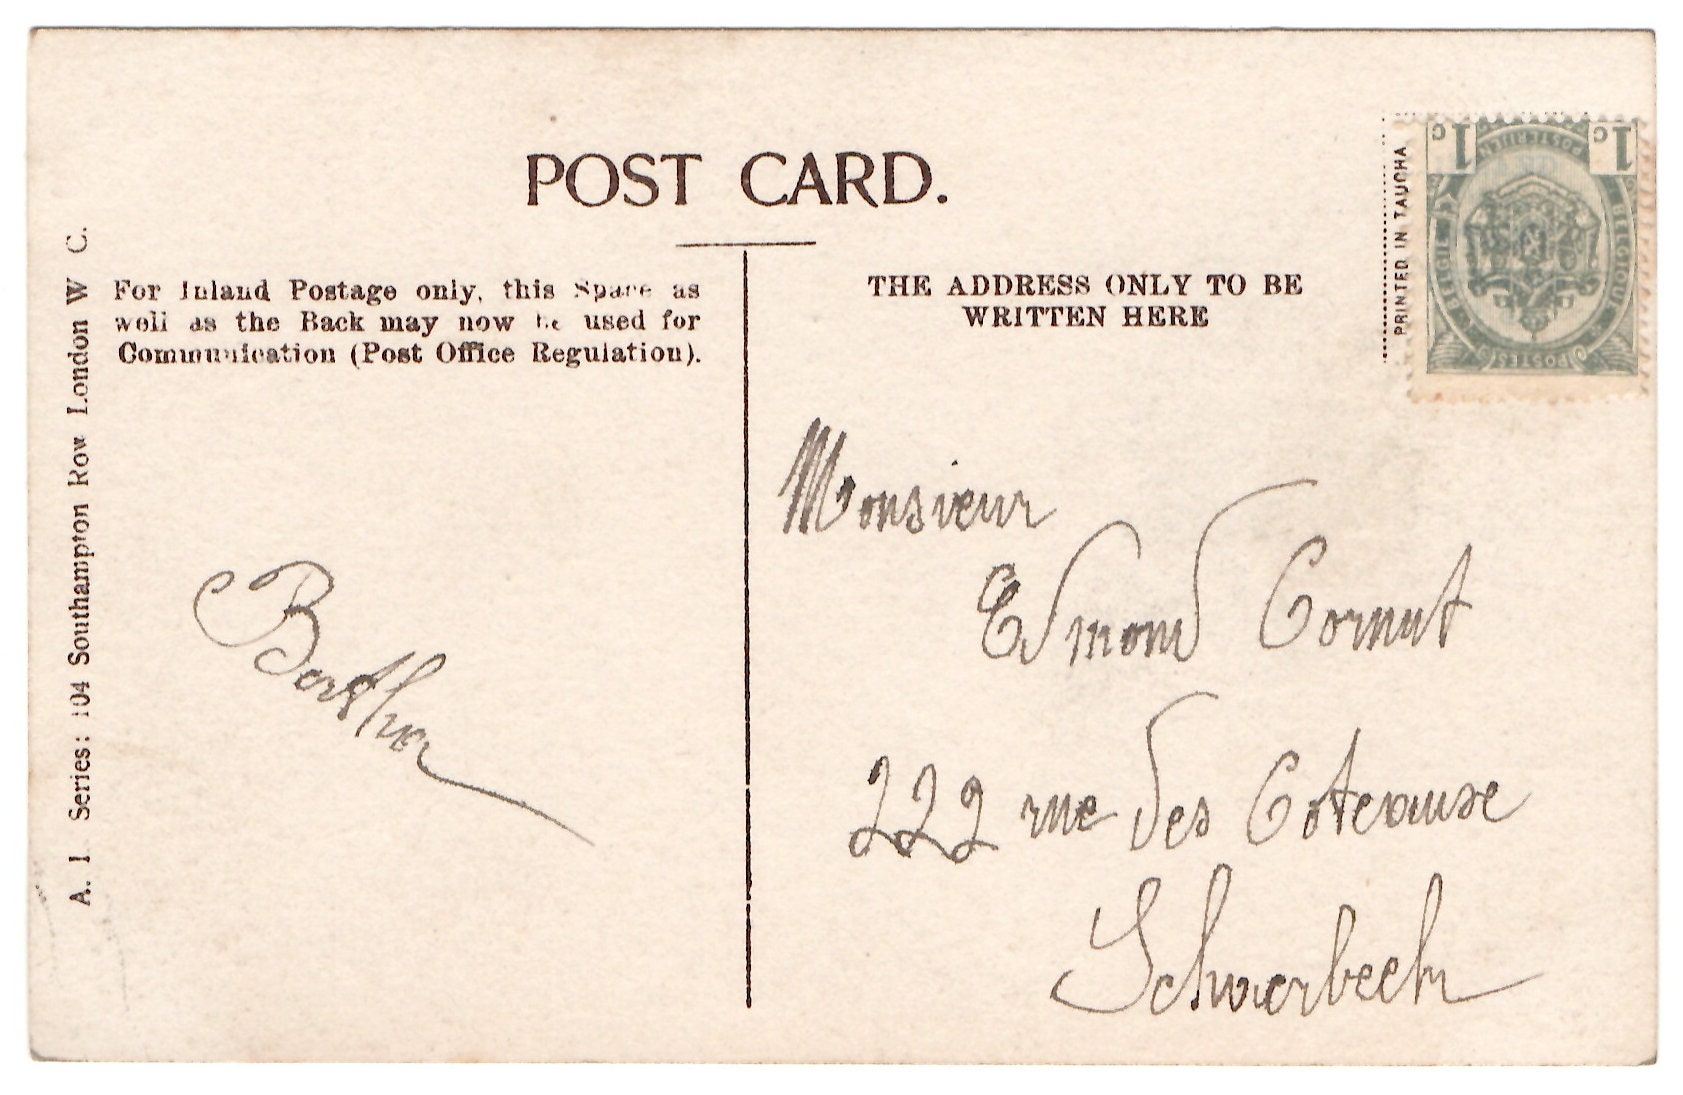 POST CARD.
For Inland Postage only, this Space as
well as the Back may now be used for
Communication (Post Office Regulation).
THE ADDRESS ONLY TO BE
WRITTEN HERE
A. I Series: 104 Southampton Row London W C.
PRINTED IN TAUCHA
1c 1c
POSTERIJEN
BELGIQUE
BELGIË
POSTES
Bertha
Monsieur
Edmond Cornut
222 rue des Coteaux
Schaerbeek